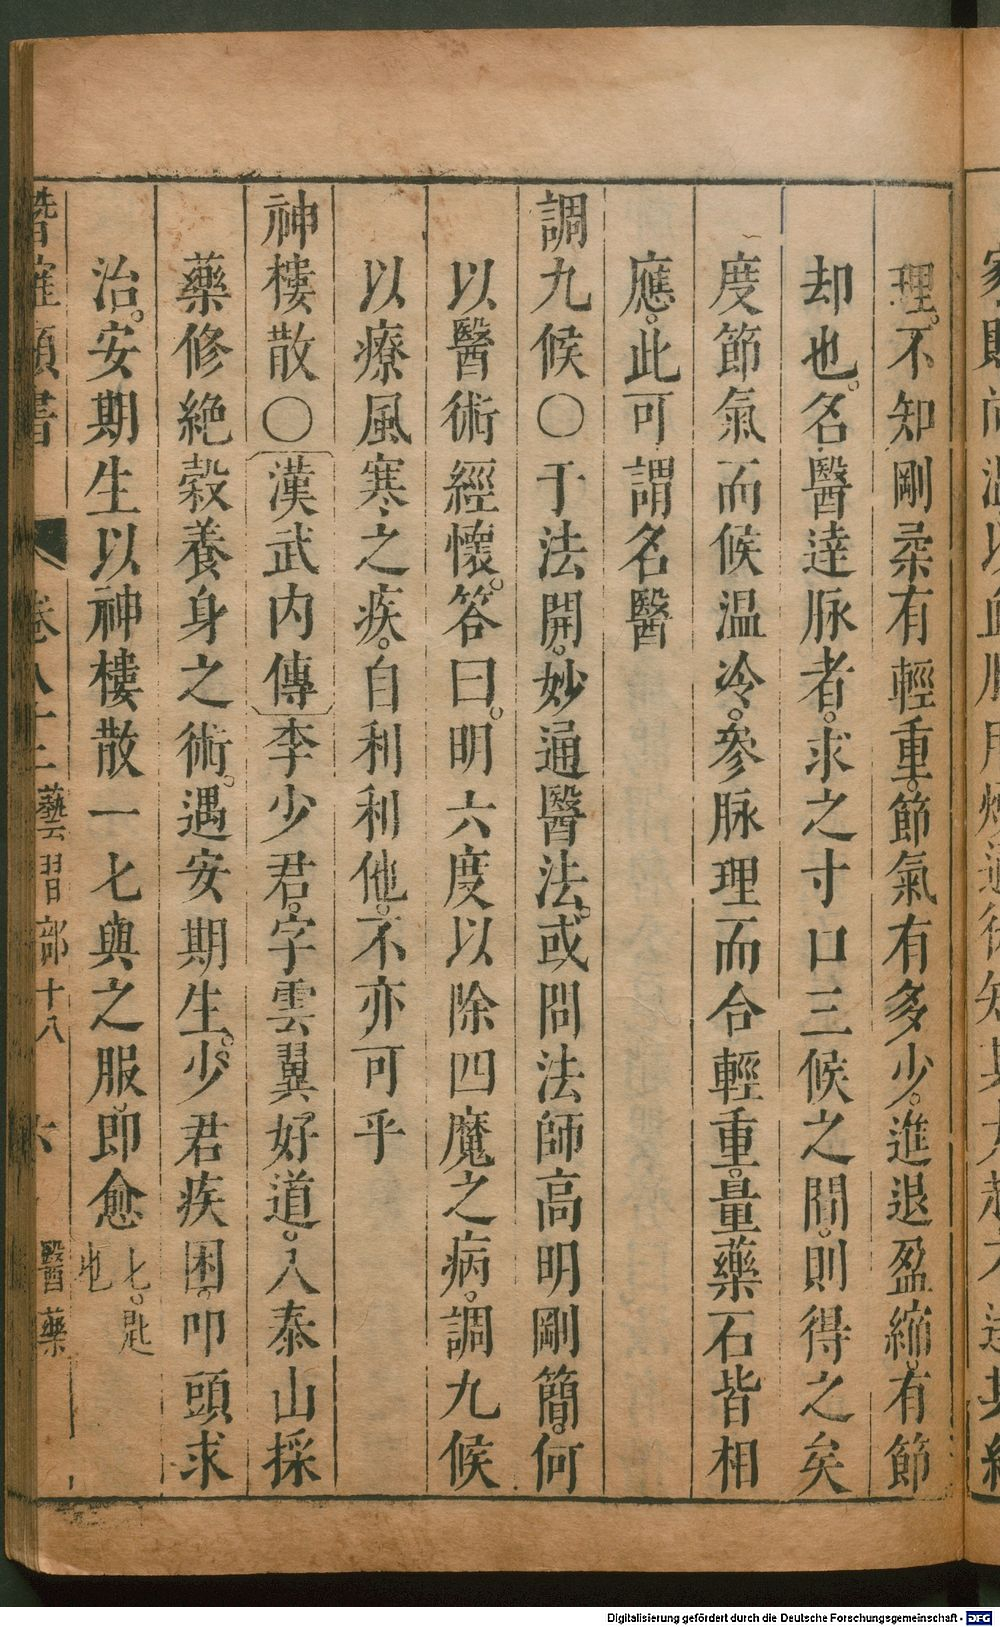 理。不知剛柔有輕重。節氣有多少。進退盈縮。有節
却也。名醫達脉者。求之寸口三候之間。則得之矣
度節氣而候温冷。參脉理而合輕重。量藥石皆相
應。此可謂名醫
調九候○于法開。妙通醫法。或問法師高明剛簡。何
以醫術經懷。答曰。明六度以除四魔之病。調九候
以療風寒之疾。自利利他。不亦可乎
神樓散○漢武内傳李少君。字雲翼好道。入泰山採
藥修絶穀養身之術。遇安期生。少君疾困。叩頭求
治。安期生以神樓散一七與之服即愈 七。匙也
類書 卷八十三 藝習部十八 六 醫藥
Digitalisierung gefördert durch die Deutsche Forschungsgemeinschaft - DFG